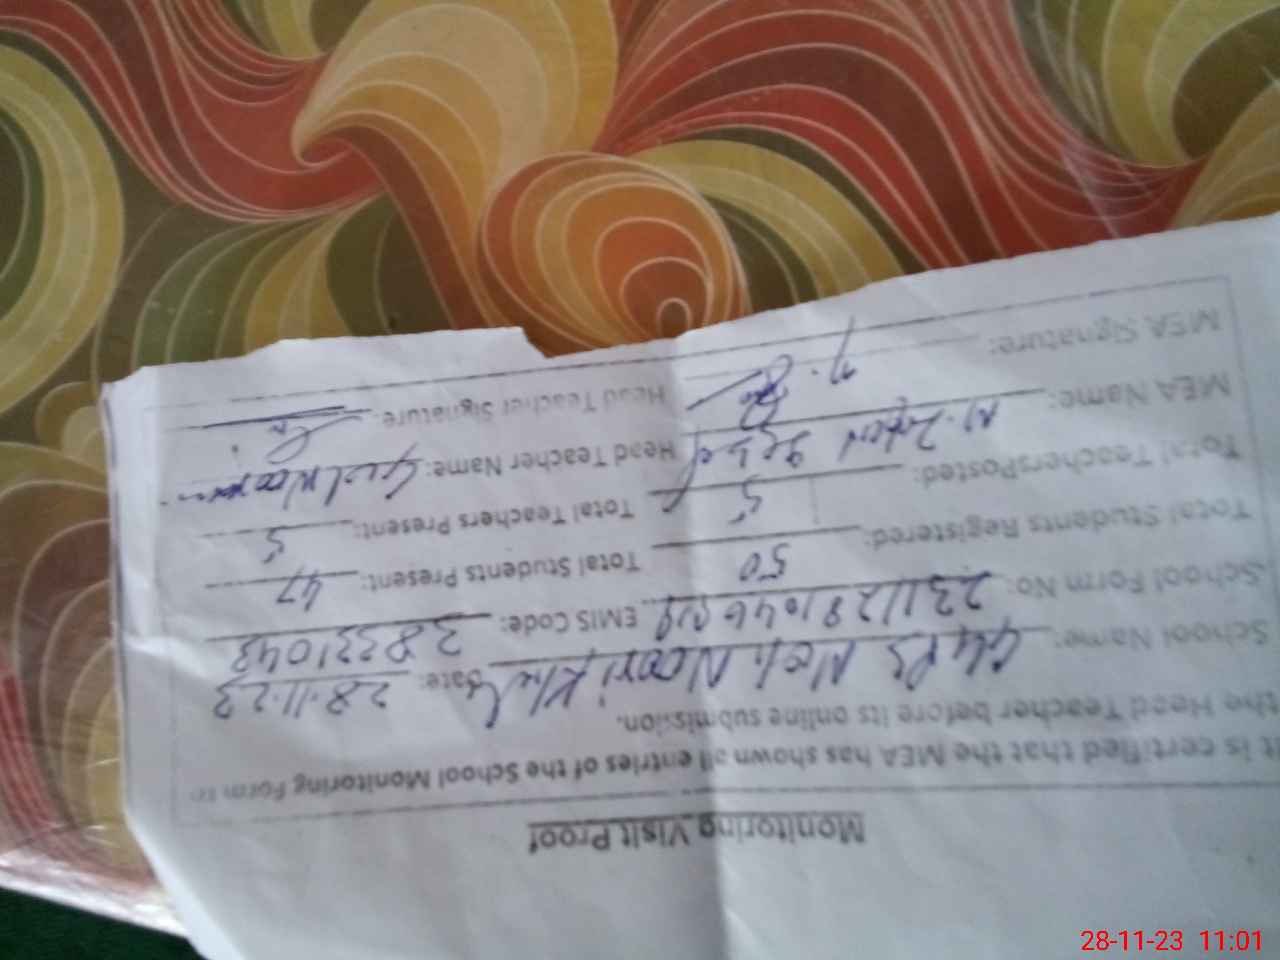 Monitoring Visit Proof
It is certified that the MEA has shown all entries of the School Monitoring Form to
the Head Teacher before its online submission.
School Name: GGPS Noori Khel Date: 28.11.23
School Form No: EMIS Code: 38331043
Total Students Registered: 50 Total Students Present: 47
Total TeachersPosted: 5 Total Teachers Present: 5
MEA Name: Head Teacher Name:
MEA Signature: Head Teacher Signature:
28-11-23 11:01